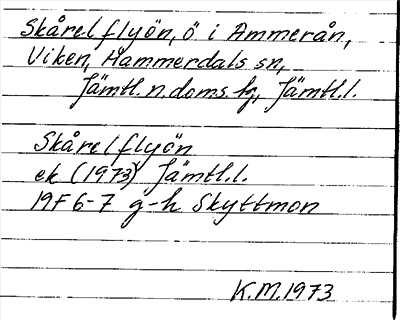 Skårelflyön, ö i Ammerån,
Viken, Hammerdals sn,
Jämtl.n.doms.hg, Jämtl.l.
Skårelflyön
ek (1973) Jämtl.l.
19F 6-7 g-h Skyttmon
K.M.1973